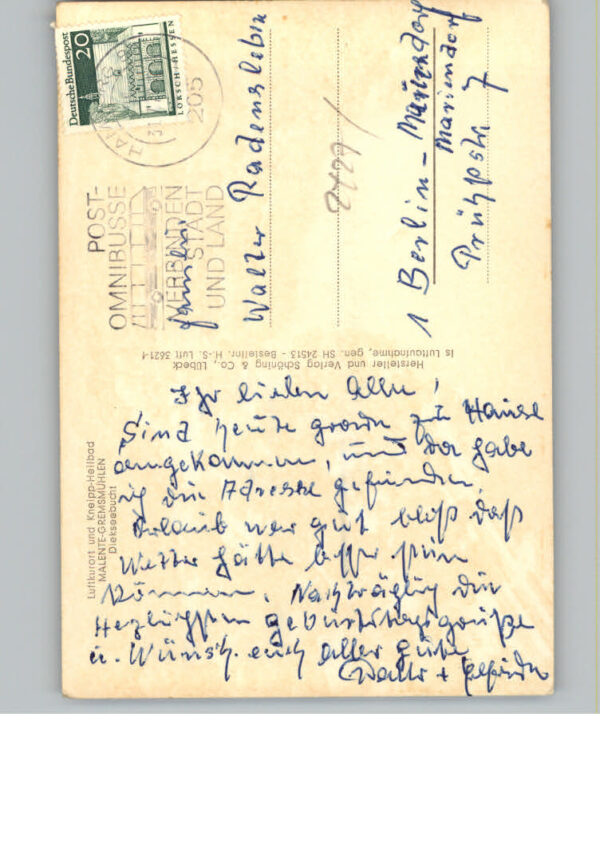 Luftkurort und Kneipp-Heilbad
MALENTE-GREMSMÜHLEN
Dieksee­bucht
Ihr lieben Alle!
Sind heute grade zu Hause
angekommen, und da habe
ich die Adresse gefunden.
Urlaub war gut bloß daß
Wetter hätte besser sein
können. Nachträglich die
Herzlichsten Geburtstagsgrüße
u. Wünsch. euch alles gute
Walter +
Hersteller und Verlag Schöning & Co., Lübeck
Is Luftaufnahme, gen. SH 24513 - Bestellnr. H.-S. Luft 3621
Deutsche Bundespost
20
LORSCH/HESSEN
205
POST-
OMNIBUSSE
VERBINDEN
STADT
UND LAND
Familie
Walter Radensleben
1 Berlin-
Mariendorf
Prühßstr. 7